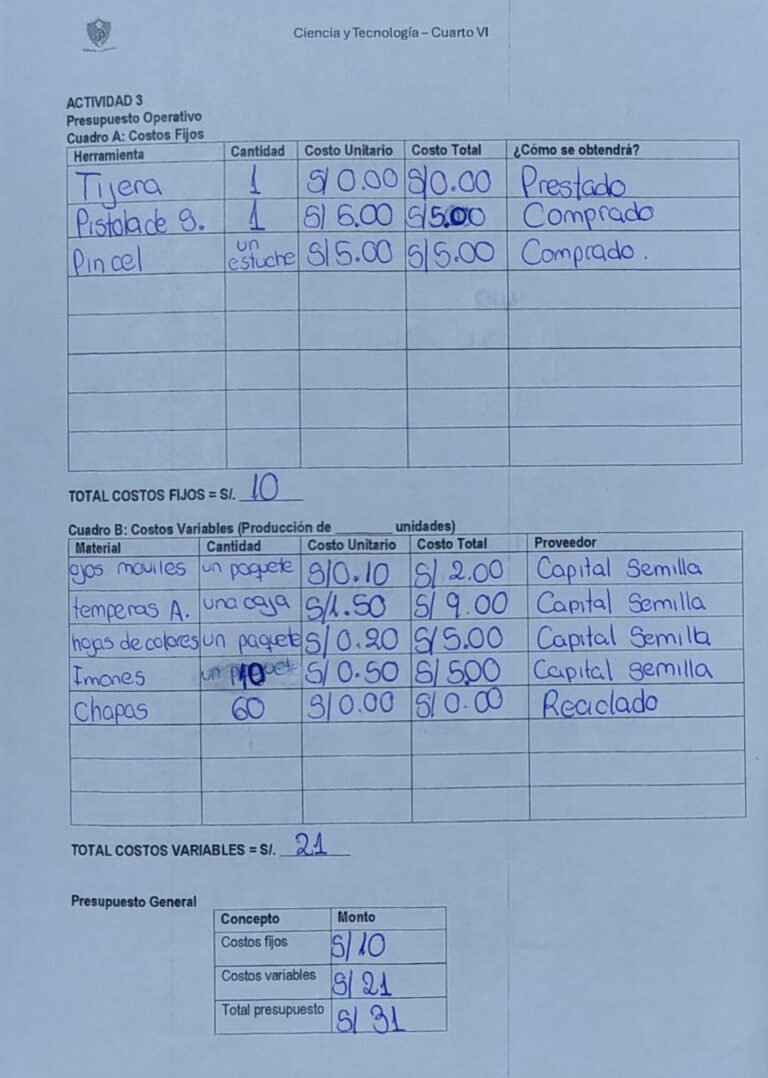 Ciencia y Tecnología – Cuarto VI
ACTIVIDAD 3
Presupuesto Operativo
Cuadro A: Costos Fijos
Herramienta Cantidad Costo Unitario Costo Total ¿Cómo se obtendrá?
Tijera 1 S/0.00 S/0.00 Prestado
Pistola de S. 1 S/ 5.00 S/5.00 Comprado
Pincel un estuche S/5.00 S/5.00 Comprado.
TOTAL COSTOS FIJOS = S/. 10
Cuadro B: Costos Variables (Producción de ______ unidades)
Material Cantidad Costo Unitario Costo Total Proveedor
ojos moviles un paquete S/0.10 S/ 2.00 Capital Semilla
temperas A. una caja S/1.50 S/ 9.00 Capital Semilla
hojas de colores un paquete S/ 0.20 S/5.00 Capital Semilla
Imanes 10 S/ 0.50 S/ 5.00 Capital semilla
Chapas 60 S/0.00 S/ 0.00 Reciclado
TOTAL COSTOS VARIABLES = S/. 21
Presupuesto General
Concepto Monto
Costos fijos S/10
Costos variables S/ 21
Total presupuesto S/ 31